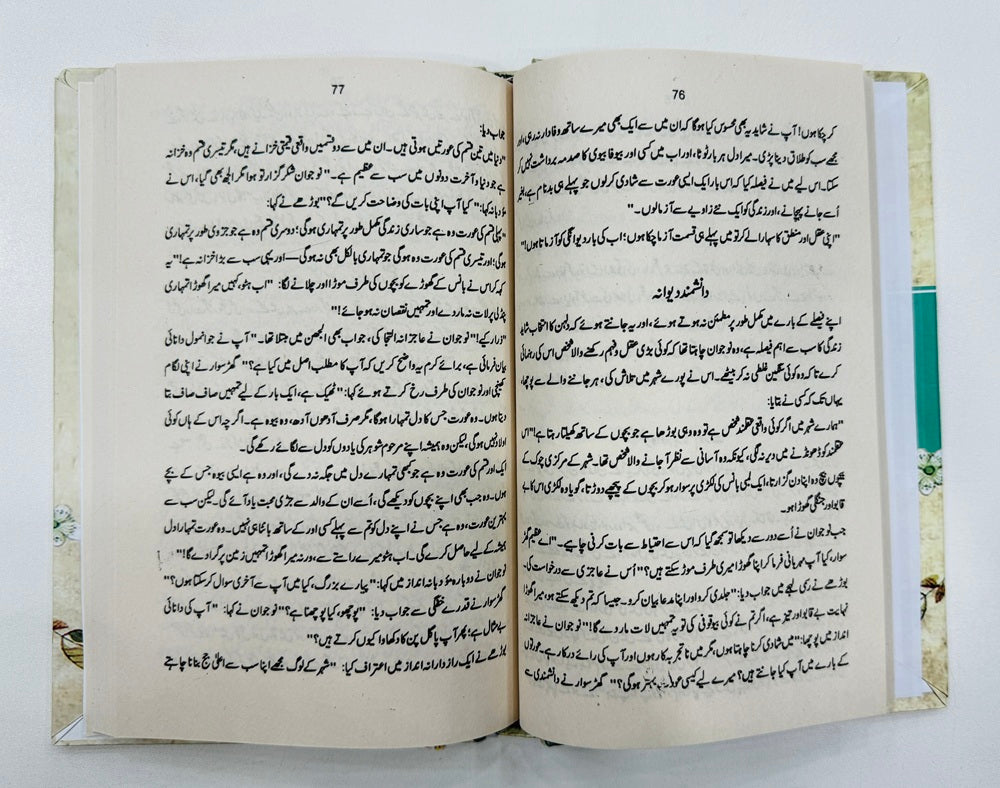 76
کر چکا ہوں! آپ نے شاید یہ بھی محسوس کیا ہوگا کہ ان میں سے ایک بھی میرے ساتھ وفادار نہ رہی، اور
مجھے سب کو طلاق دینا پڑی۔ میرا دل ہر بار ٹوٹا، اور اب میں کسی اور بیوفا بیوی کا صدمہ برداشت نہیں کر
سکتا۔ اس لیے میں نے فیصلہ کیا کہ اس بار ایک ایسی عورت سے شادی کر لوں جو پہلے ہی بدنام ہے، بغیر
اُسے جانے پہچانے، اور زندگی کو ایک نئے زاویے سے آزمالوں۔"
"اپنی عقل اور منطق کا سہارا لے کر تو میں پہلے ہی قسمت آزما چکا ہوں؛ اب کی بار دیوانگی کو آزماتا ہوں!"
دانشمند دیوانہ
اپنے فیصلے کے بارے میں مکمل طور پر مطمئن نہ ہوتے ہوئے، اور یہ جانتے ہوئے کہ دلہن کا انتخاب شاید
زندگی کا سب سے اہم فیصلہ ہے، وہ نوجوان چاہتا تھا کہ کوئی بڑی عقل و فہم رکھنے والا شخص اس کی رہنمائی
کرے تاکہ وہ کوئی سنگین غلطی نہ کر بیٹھے۔ اس نے پورے شہر میں تلاش کی، ہر جاننے والے سے پوچھا،
یہاں تک کہ کسی نے بتایا:
"ہمارے شہر میں اگر کوئی واقعی عقلمند شخص ہے تو وہ وہی بوڑھا ہے جو بچوں کے ساتھ کھیلتا رہتا ہے!" اس
عقلمند کو ڈھونڈنے میں دیر نہ لگی، کیونکہ وہ آسانی سے نظر آ جانے والا شخص تھا۔ شہر کے مرکزی چوک کے
بیچوں بیچ وہ اپنا دن گزارتا، ایک لمبی بانس کی لکڑی پر سوار ہو کر بچوں کے پیچھے دوڑتا، گویا وہ لکڑی اس کا بے
قابو اور جنگلی گھوڑا ہو۔
جب نوجوان نے اُسے دور سے دیکھا تو سمجھ گیا کہ اس سے احتیاط سے بات کرنی چاہیے۔ "اے عظیم گھڑ
سوار، کیا آپ مہربانی فرما کر اپنا گھوڑا میری طرف موڑ سکتے ہیں؟" اُس نے عاجزی سے درخواست کی۔
بوڑھے نے رسمی لہجے میں جواب دیا: "جلدی کرو اور اپنا مدعا بیان کرو۔ جیسا کہ تم دیکھ سکتے ہو، میرا گھوڑا
نہایت بے قابو اور تیز ہے، اگر تم نے کوئی بیوقوفی کی تو یہ تمہیں لات مار دے گا!" نوجوان نے عاجزانہ
انداز میں پوچھا: "میں شادی کرنا چاہتا ہوں، مگر میں ناتجربہ کار ہوں اور آپ کی رائے درکار ہے۔ عورتوں
کے بارے میں آپ کیا جانتے ہیں؟ میرے لیے کیسی عورت بہتر ہوگی؟" گھڑ سوار نے دانشمندی سے
77
جواب دیا:
"دنیا میں تین قسم کی عورتیں ہوتی ہیں۔ ان میں سے دو قسمیں واقعی قیمتی خزانے ہیں، مگر تیسری قسم وہ خزانہ
ہے جو دنیا و آخرت دونوں میں سب سے عظیم ہے۔" نوجوان شکر گزار تو ہوا مگر الجھ بھی گیا، اس نے
مؤدبانہ کہا: "کیا آپ اپنی بات کی وضاحت کریں گے؟" بوڑھے نے کہا:
"پہلی قسم کی عورت وہ ہے جو ساری زندگی مکمل طور پر تمہاری ہوگی؛ دوسری قسم وہ ہے جو جزوی طور پر تمہاری
ہوگی؛ اور تیسری قسم کی عورت وہ ہوگی جو تمہاری بالکل بھی نہ ہوگی—اور یہی سب سے بڑا خزانہ ہے!" یہ
کہہ کر اس نے بانس کے گھوڑے کو بچوں کی طرف موڑا اور چلانے لگا: "اب ہٹو، کہیں میرا گھوڑا تمہاری
پنڈلی پر لات نہ مار دے اور تمہیں نقصان نہ ہو جائے!"
"ذرا رکیے!" نوجوان نے عاجزانہ التجا کی، جو اب بھی الجھن میں مبتلا تھا۔ "آپ نے جو انمول دانائی
بیان فرمائی ہے، برائے کرم یہ واضح کریں کہ آپ کا مطلب اصل میں کیا ہے؟" گھڑ سوار نے اپنی لگام
کھینچی اور نوجوان کی طرف رخ کرتے ہوئے کہا: "ٹھیک ہے، ایک بار کے لیے تمہیں صاف صاف بتا
دیتا ہوں۔ وہ عورت جس کا دل تمہارا ہوگا، مگر صرف آدھوں آدھ، وہ بیوہ ہے۔ اگرچہ اس کے ہاں کوئی
اولاد نہیں ہوگی، لیکن وہ ہمیشہ اپنے مرحوم شوہر کی یادوں کو دل سے لگائے رکھے گی۔
ایک اور قسم کی عورت وہ ہے جو کبھی تمہارے دل میں جگہ نہ دے گی، اور وہ ہے ایسی بیوہ جس کے بچے
ہوں۔ وہ جب بھی اپنے بچوں کو دیکھے گی، اُسے ان کے والد سے جڑی محبت یاد آئے گی۔ لیکن سب سے
بہترین عورت، وہ ہے جس نے اپنے دل کو تم سے پہلے کسی اور کے ساتھ بانٹا ہی نہیں۔ وہ عورت تمہارا دل
ہمیشہ کے لیے حاصل کرے گی۔ اب ہٹو میرے راستے سے، ورنہ میرا گھوڑا تمہیں زمین پر گرا دے گا!"
نوجوان نے دوبارہ مؤدبانہ انداز میں کہا: "پیارے بزرگ، کیا میں آپ سے آخری سوال کر سکتا ہوں؟"
گھڑ سوار نے قدرے خفگی سے جواب دیا: "پوچھو، کیا پوچھنا ہے؟" نوجوان نے کہا: "آپ کی دانائی
بے مثال ہے؛ پھر آپ پاگل پن کا دکھاوا کیوں کرتے ہیں؟"
بوڑھے نے ایک رازدارانہ انداز میں اعتراف کیا: "شہر کے لوگ مجھے اپنا سب سے اعلیٰ جج بنانا چاہتے